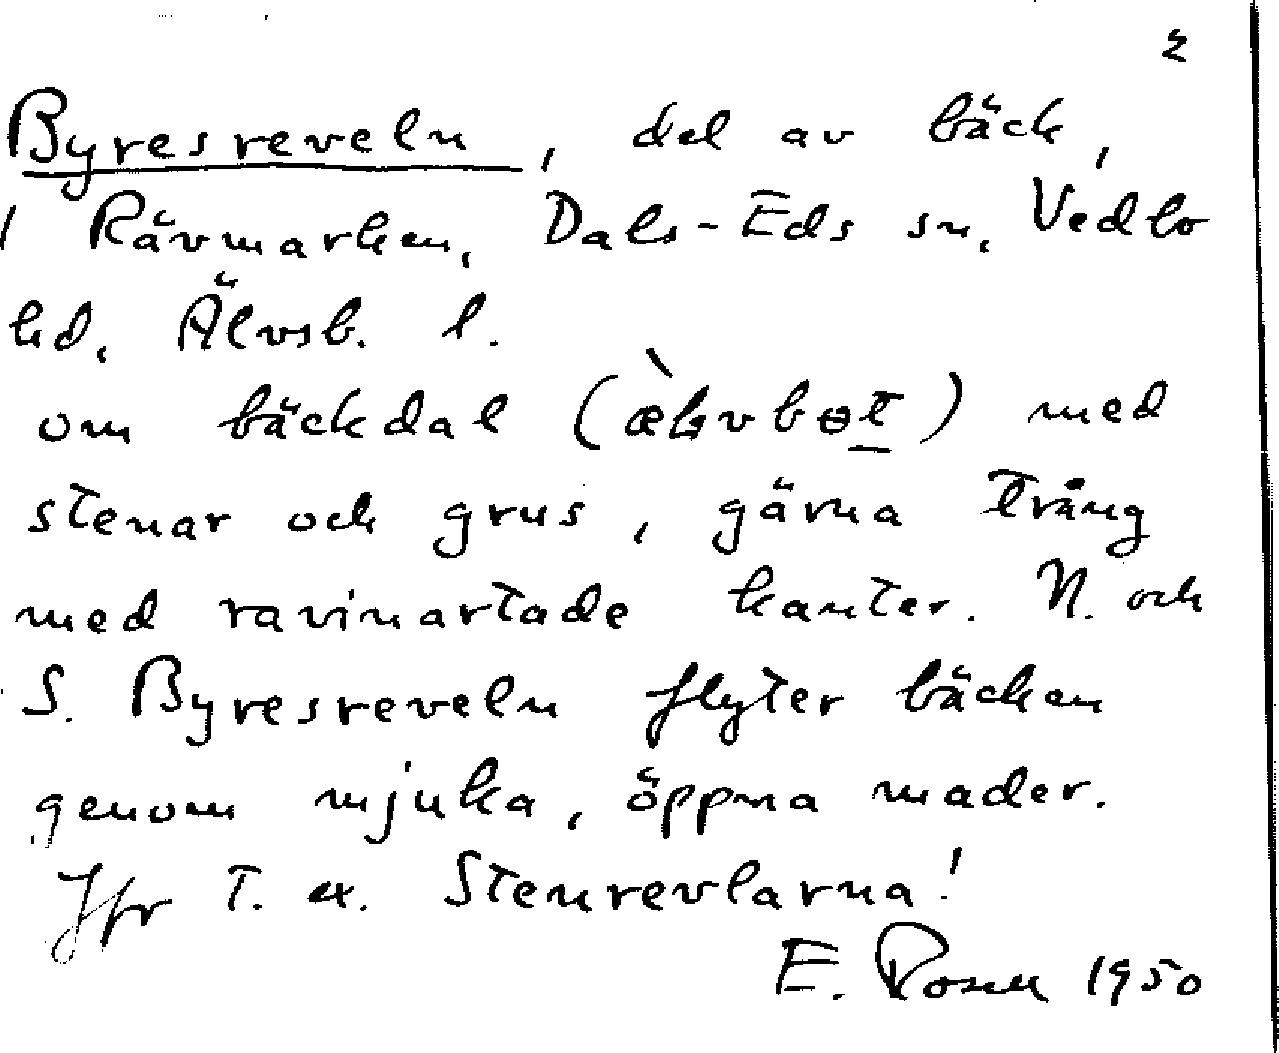 2
Byresreveln, del av bäck,
i Rävmarken, Dals-Eds sn, Vedbo
hd, Älvsb. l.
om bäckdal () med
stenar och grus, gärna trång
med ravinartade kanter. N. och
S. Byresreveln flyter bäcken
genom mjuka, öppna mader.
Jfr t. ex. Stenrevlarna!
E. Rosell 1950